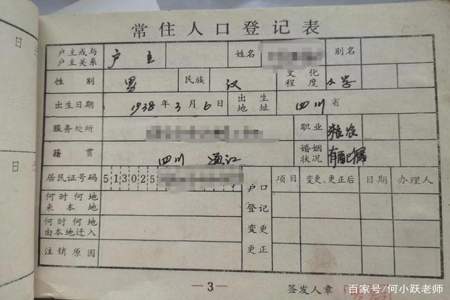 常住人口登记表
户主或与户主关系 户主 姓名 别名
性别 男 民族 汉 文化程度 小学
出生日期 1938年3月6日 出生地址 四川省
服务处所 职业 粮农
籍贯 四川 婚姻状况 有配偶
居民证号码 513025
户口登记变更更正 项目 变更、更正后 日期 办理人
何时何地来本地
何时何地由本地迁入
注销原因
—3— 签发人章
百家号/何小跃老师